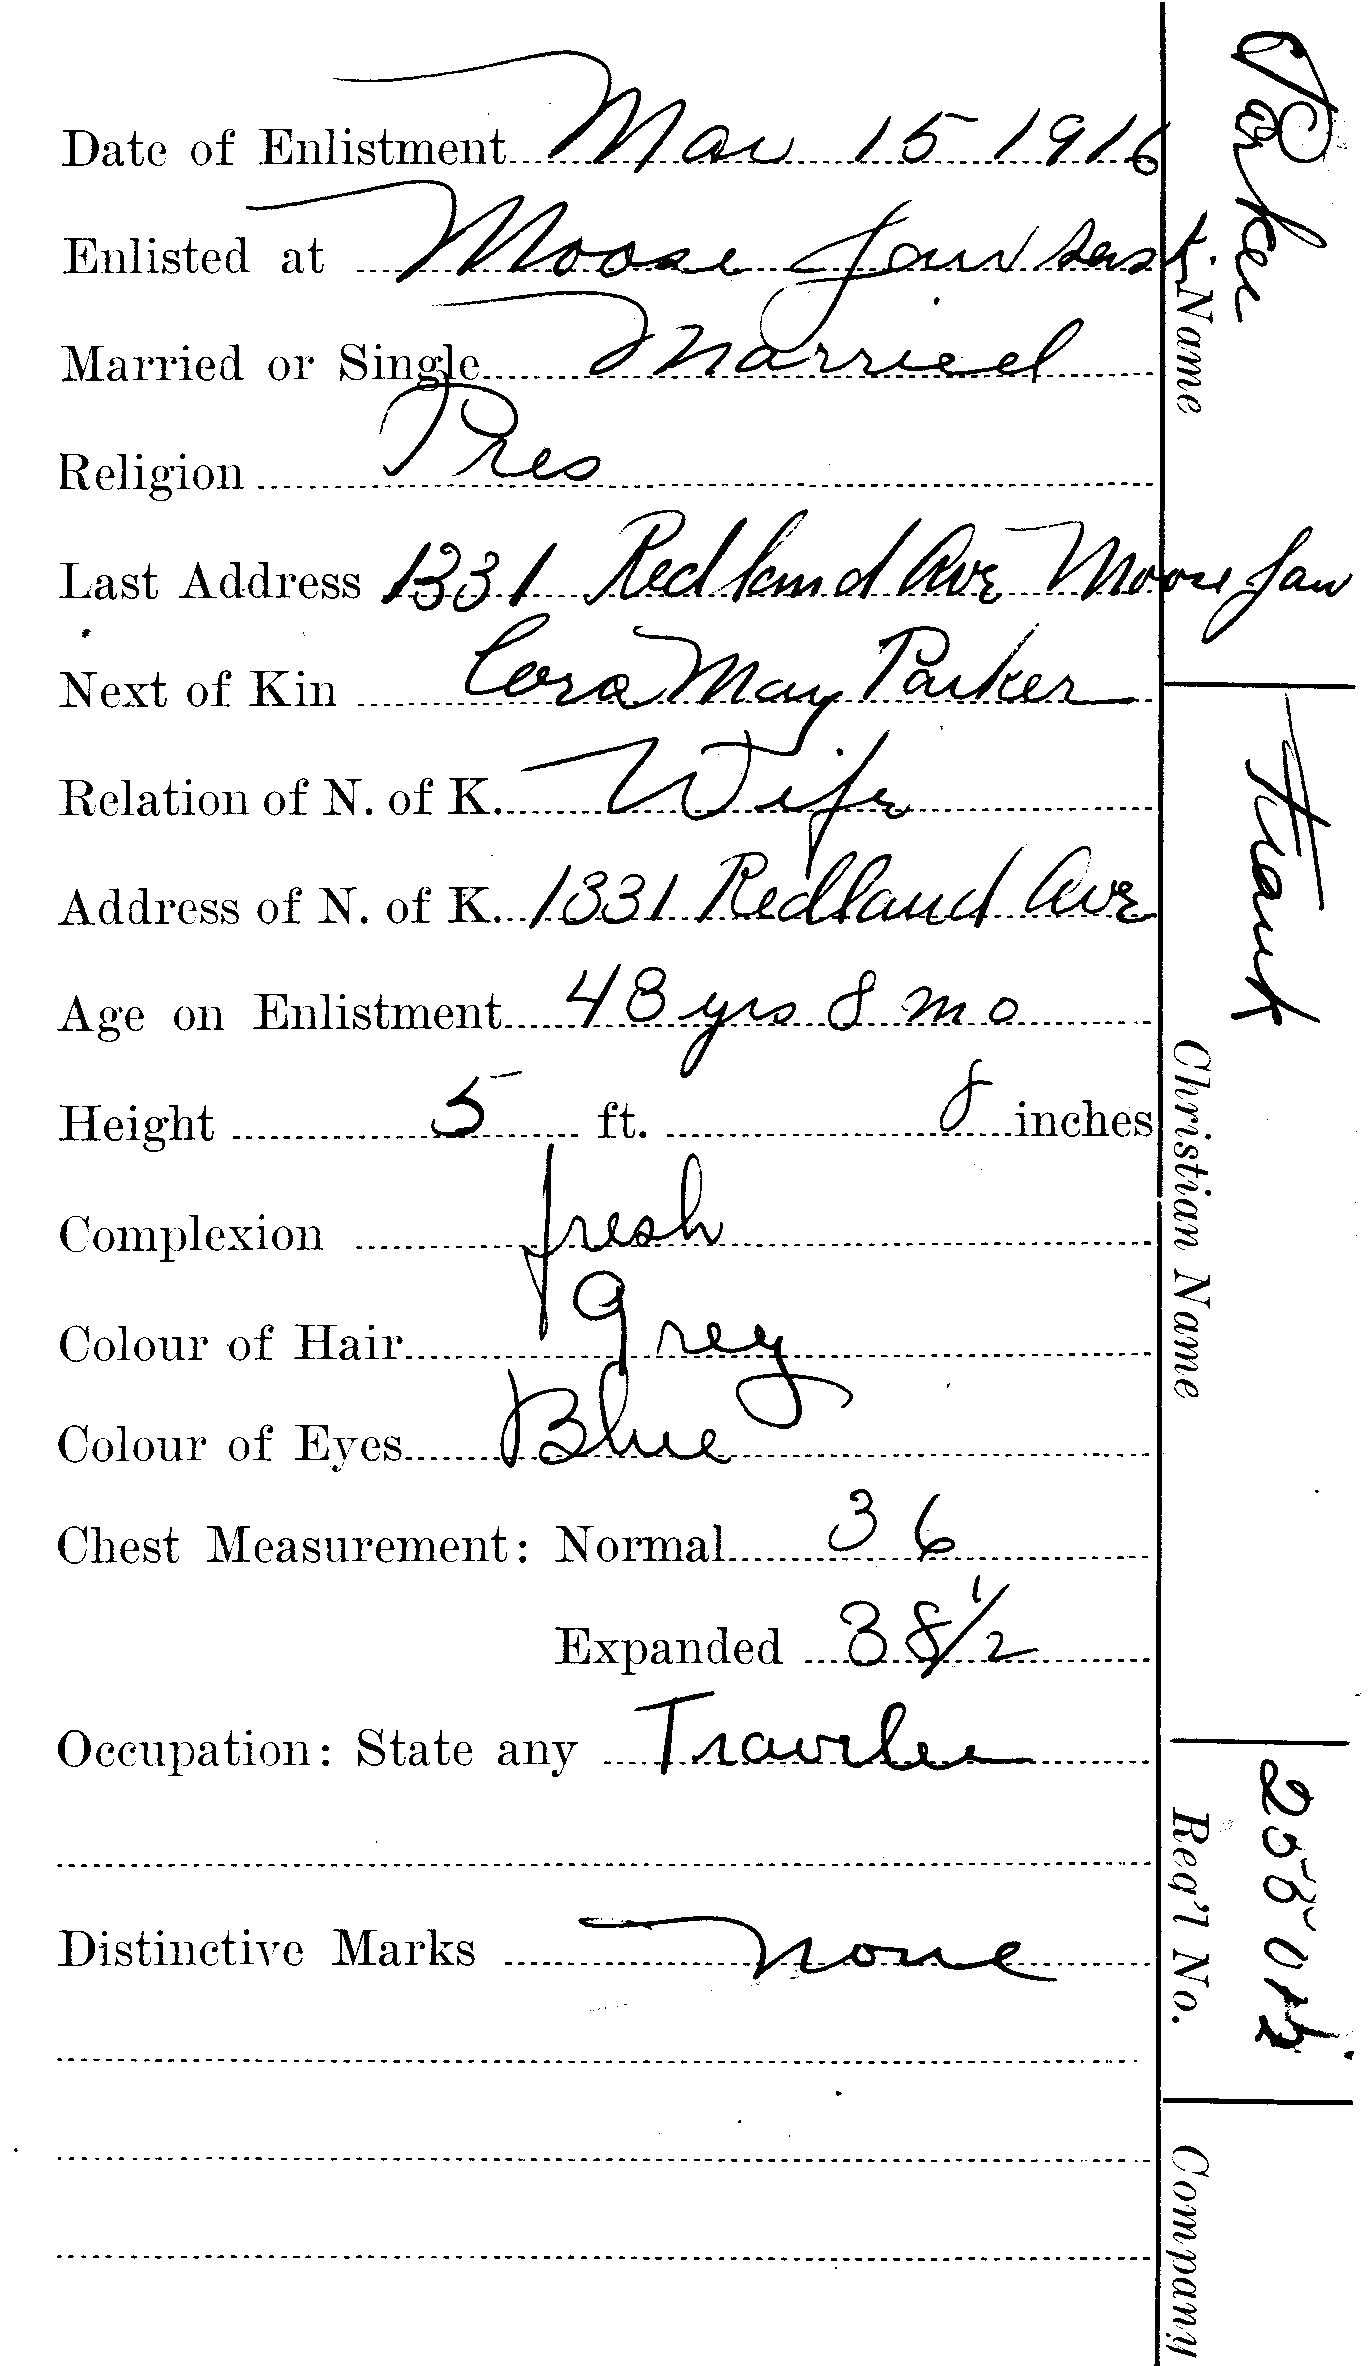 Date of Enlistment Mar 15 1916
Enlisted at Moose Jaw Sask.
Married or Single Married
Religion Pres
Last Address 1331 Redland Ave Moose Jaw
Next of Kin Cora May Parker
Relation of N. of K. Wife
Address of N. of K. 1331 Redland Ave
Age on Enlistment 48 yrs 8 mo
Height 5 ft. 8 inches
Complexion fresh
Colour of Hair Grey
Colour of Eyes Blue
Chest Measurement: Normal 36
Expanded 38 1/2
Occupation: State any Traveler
Distinctive Marks None
Parker
Name
Frank
Christian Name
Reg'l No.
Company